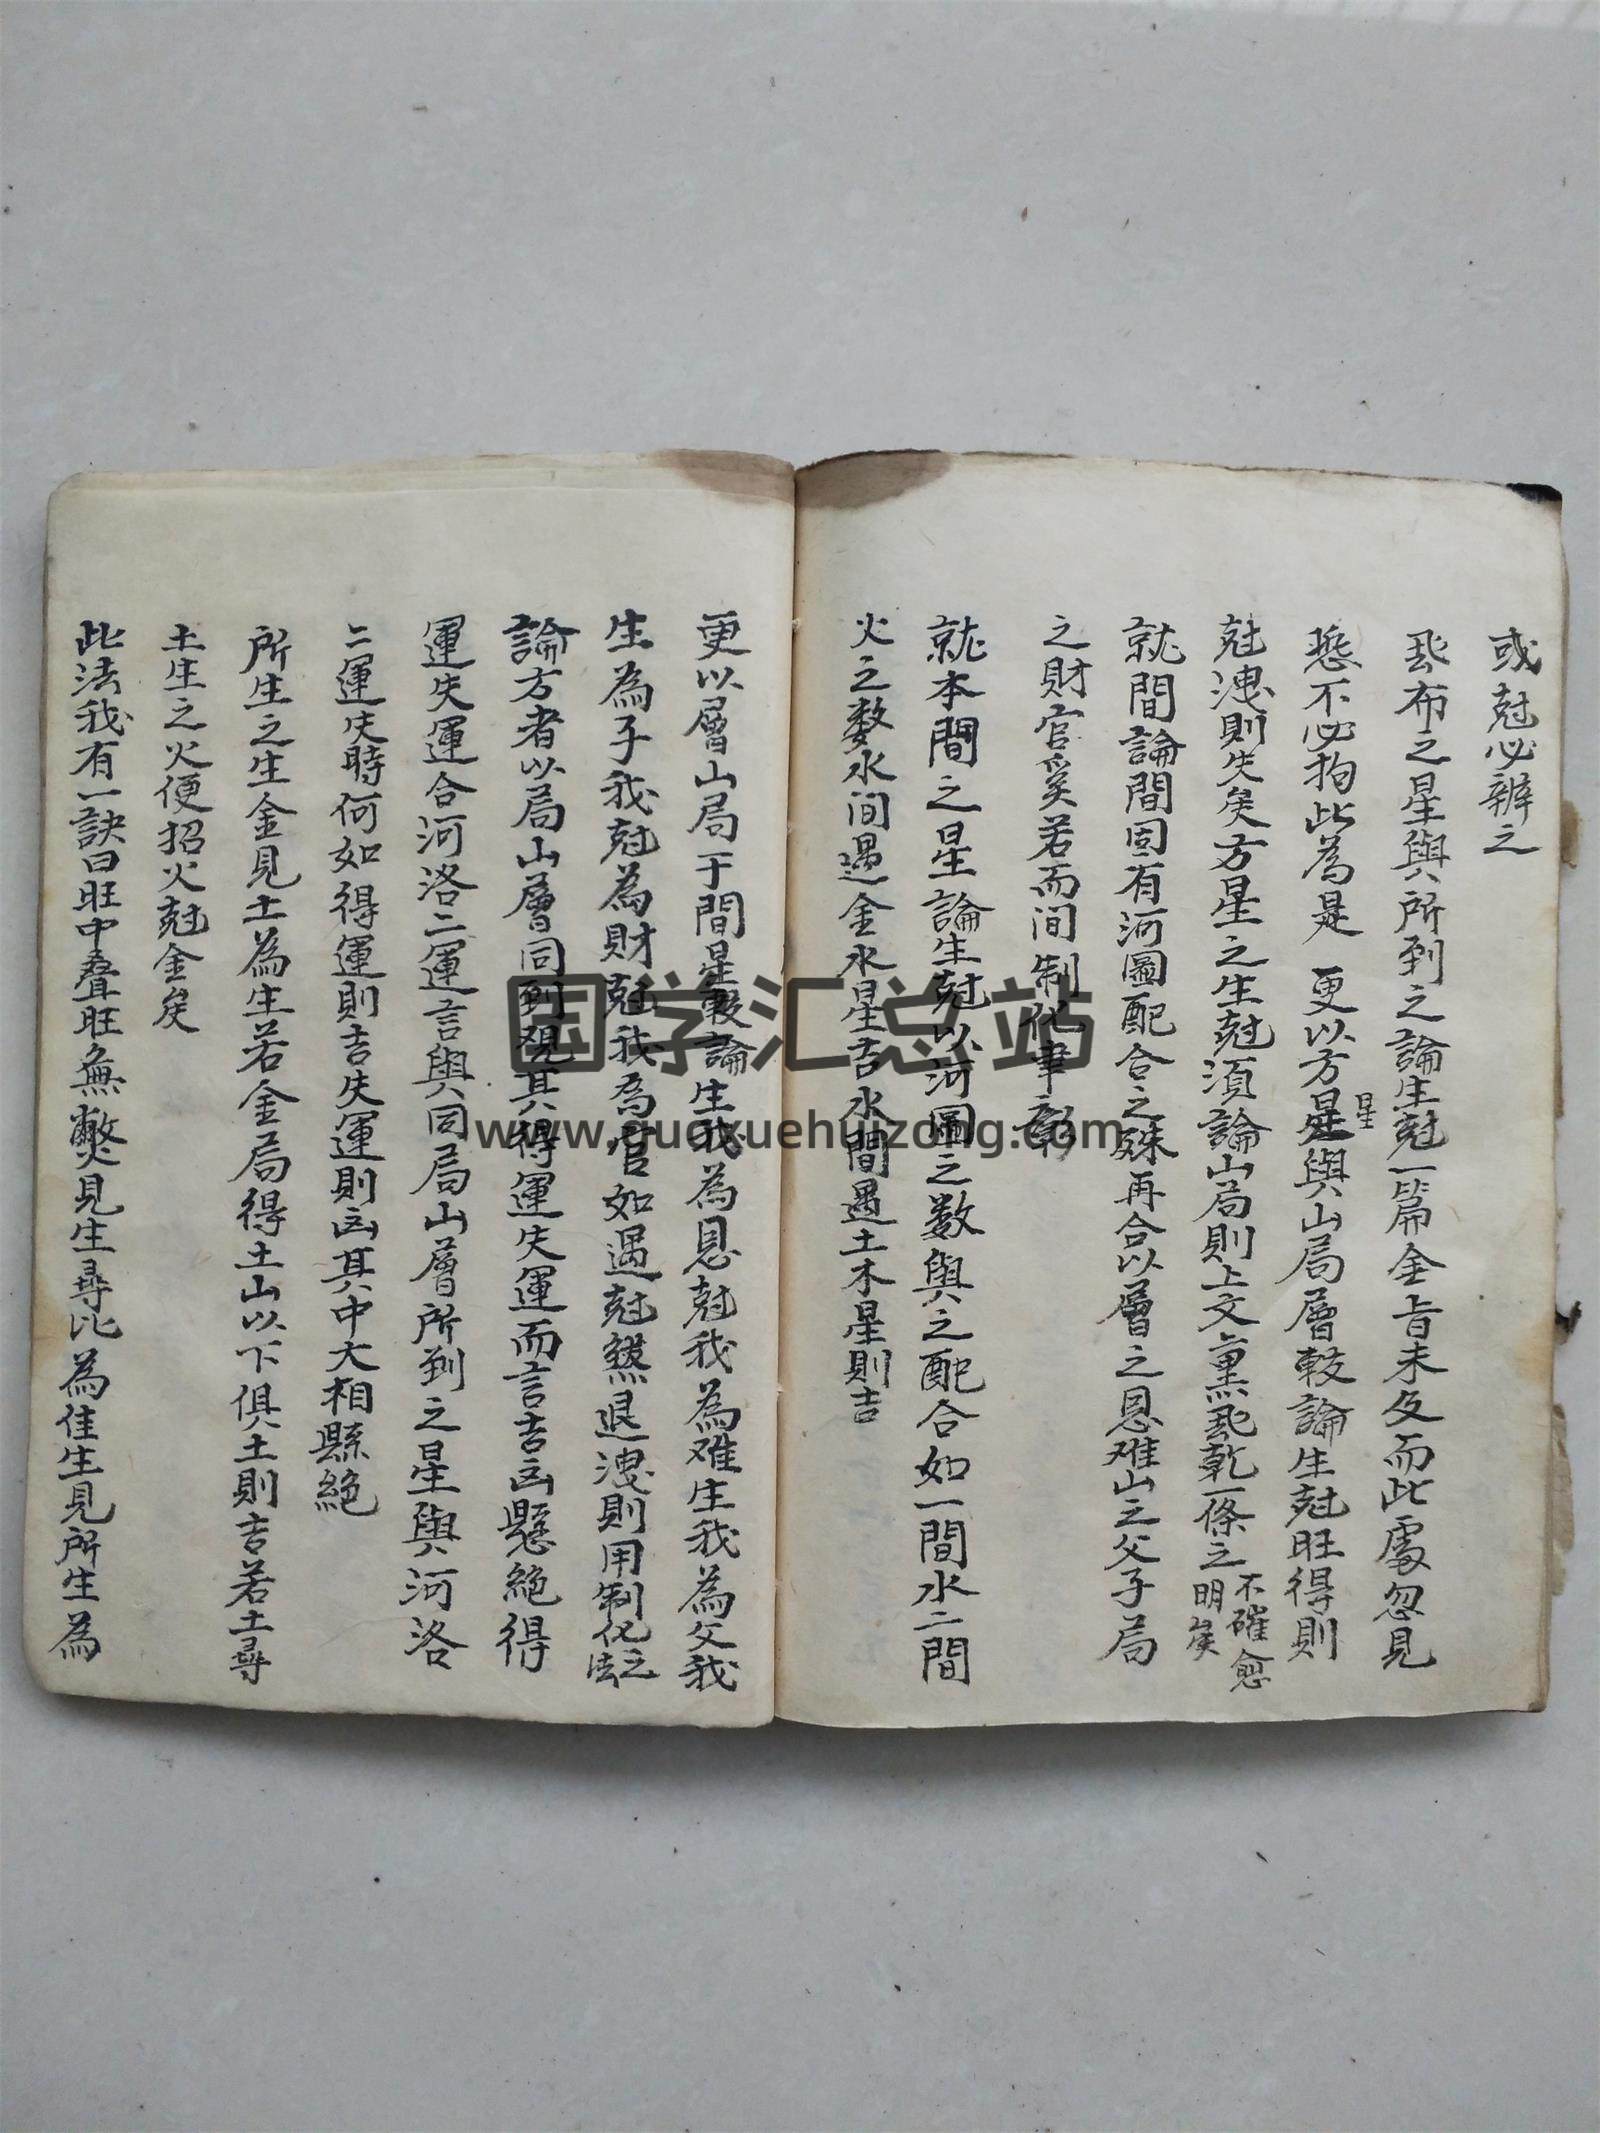 或尅必辨之
飛布之星與所到之論生尅一篇金旨未及而此處忽見
悲不必拘此為是　更以方星與山局層較論生尅旺得則
星
尅洩則失矣方星之生尅須論山局則上文意黑飛乾一條之不確愈明矣
就間論間固有河圖配合之殊再合以層之恩难山之父子局
之財官奚若而间制化聿彰
就本間之星論生尅以河圖之数與之配合如一間水二間
火之数水间遇金水星吉水間遇土木星則吉
更以層山局于間星較論生我為恩尅我為难生我為父我
生為子我尅為財尅我為官如遇尅煞退洩則用制化之法
論方者以局山層同到观其得運失運而言吉凶懸絶得
運失運合河洛二運言與同局山層所到之星與河洛
二運失時何如得運則吉失運則凶其中大相縣絶
所生之生金見土為生若金局得土山以下俱土則吉若土尋
土生之火便招火尅金矣
此法我有一訣曰旺中叠旺無獘見生尋比為佳生見所生為
国学汇总站
www.guoxuehuizong.com